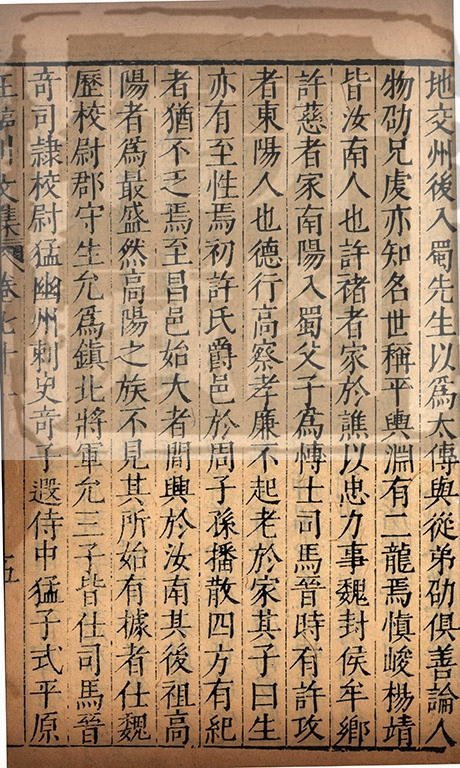 地交州後入蜀先生以爲太傅與從弟劭俱善論人
物劭兄虔亦知名世稱平輿淵有二龍焉慎峻楊靖
皆汝南人也許褚者家於譙以忠力事魏封侯牟鄉
許慈者家南陽入蜀父子爲慱士司馬晉時有許孜
者東陽人也德行高察孝廉不起老於家其子曰生
亦有至性焉初許氏爵邑於周子孫播散四方有紀
者猶不乏焉至昌邑始大者間興於汝南其後祖高
陽者爲最盛然高陽之族不見其所始有據者仕魏
歷校尉郡守生允爲鎮北將軍允三子皆仕司馬晉
奇司隷校尉猛幽州刺史奇子遐侍中猛子式平原
王臨川文集 卷七十一 五